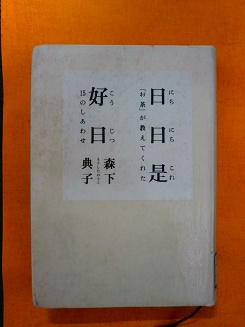 日日是
にち にち これ
「お茶」が教えてくれた
好日
こう じつ
15のしあわせ
森下
典子